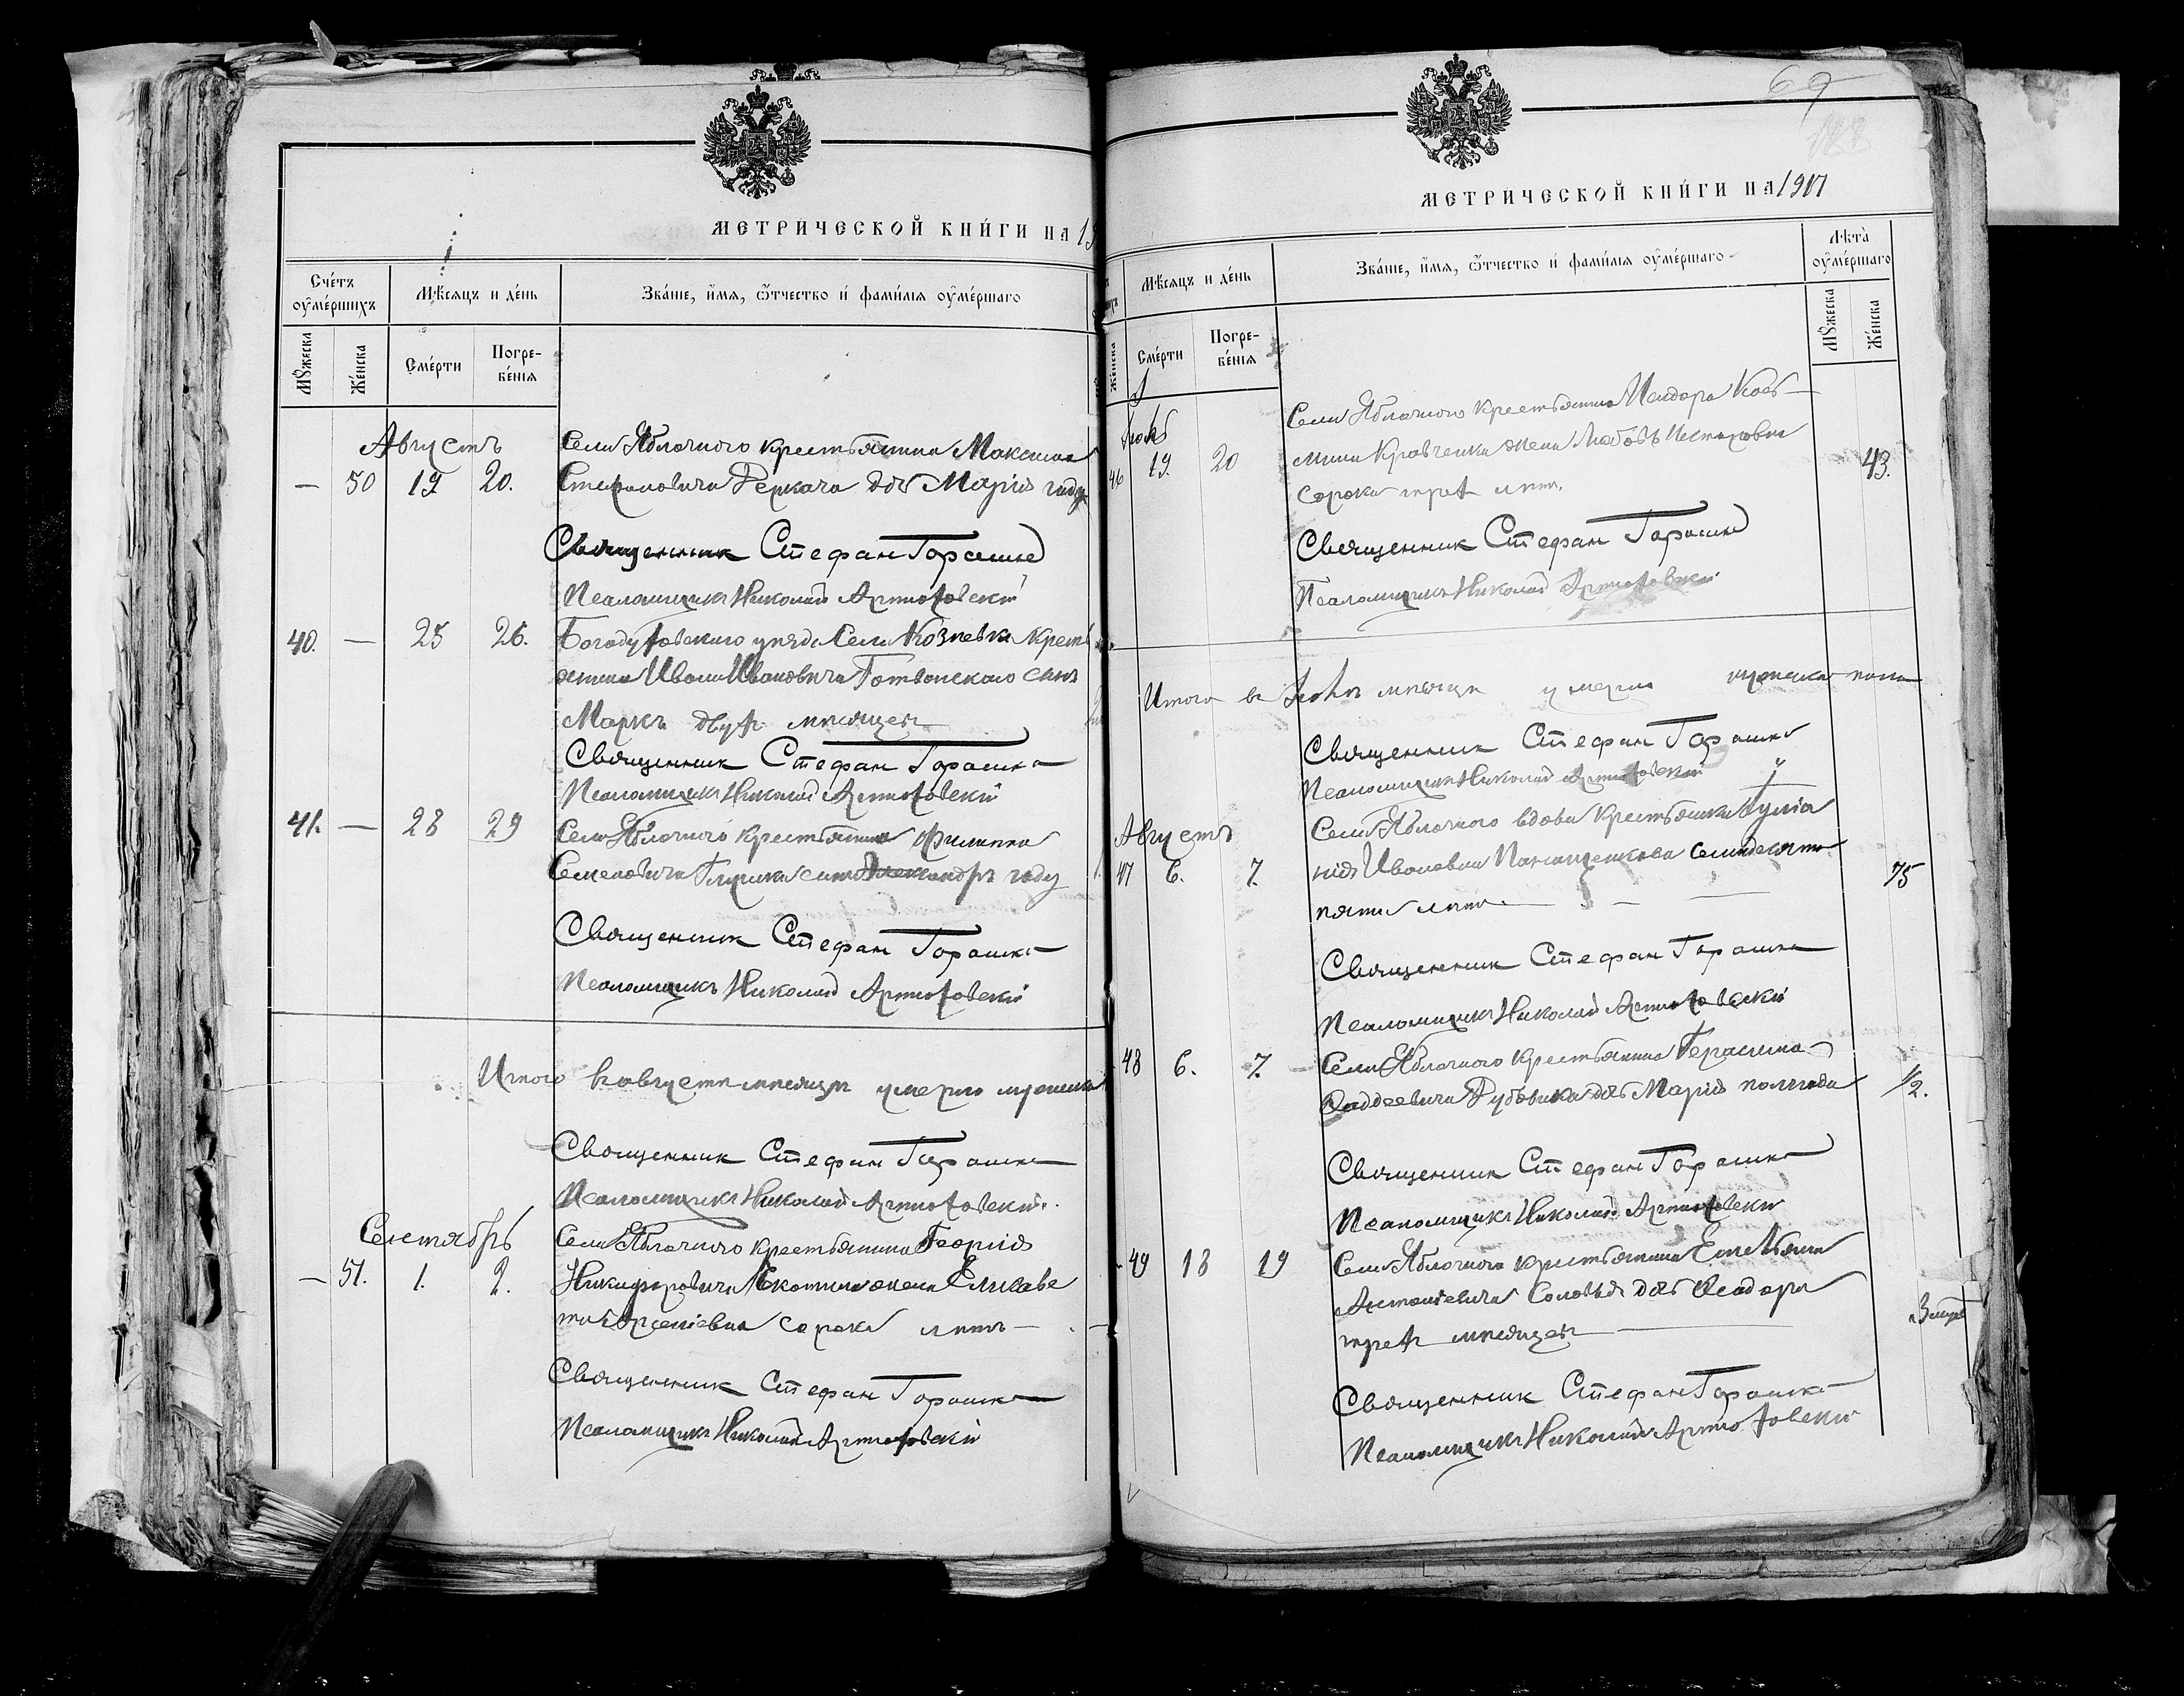 МЕТРИЧЕСКОЙ КНИ́ГИ НА 19
Сче́тъ оу҆ме́ршихъ
Мѣ́сяцъ и де́нь
Зва́нїе, и҆́мя, ѻ҆́тчество и҆ фами́лїя оу҆ме́ршаго
Мꙋ́жеска
Же́нска
Сме́рти
Погре-
бе́нїя
Августъ
Села Яблочнаго крестьянина Максима
— 50 19 20. Стефановича Деркача дочь Марія году
Священник Стефан Горошко
Псаломщикъ Николай Артюховскій
40. — 25 26. Богодуховскаго уѣзда Села Козѣевки крестья
янина Ивана Ивановича сынъ
Маркъ двухъ мѣсяцевъ
Священник Стефан Горошко
Псаломщикъ Николай Артюховскій
41. — 28 29 Села Яблочнаго крестьянина Филиппа
Семеновича сынъ Александръ году
Священник Стефан Горошко
Псаломщикъ Николай Артюховскій
Итого въ августѣ мѣсяцѣ умерло мужеска
Священник Стефан Горошко
Псаломщикъ Николай Артюховскій.
Сентябрь
Села Яблочнаго крестьянина Георгія
— 51. 1. 2. Никифоровича жена Елисаве
та Арсеніевна сорока лѣтъ —
Священник Стефан Горошко
Псаломщикъ Николай Артюховскій
69
МЕТРИЧЕСКОЙ КНИ́ГИ НА 1901
Мѣ́сяцъ и де́нь
Зва́нїе, и҆́мя, ѻ҆́тчество и҆ фами́лїя оу҆ме́ршаго
Лѣ́та оу҆ме́ршаго
Же́нска
Сме́рти
Погре-
бе́нїя
Мꙋ́жеска
Же́нска
Села Яблочнаго крестьянина Исидора Козь-
46 19. 20 мина Кравченка жена Любовь Несторовна 43.
сорока трехъ лѣтъ.
Священник Стефан Горошко
Псаломщикъ Николай Артюховскій
Итого въ мѣсяцѣ умерло мужеска пола
Священник Стефан Горошко
Псаломщикъ Николай Артюховскій
Августъ
Села Яблочнаго вдова крестьянка Іуліа
47 6. 7. нія Ивановна семидесяти 75
пяти лѣтъ
Священник Стефан Горошко
Псаломщикъ Николай Артюховскій
48 6. 7. Села Яблочнаго крестьянина Герасима
Фаддеевича дочь Марія полгода 1/2.
Священник Стефан Горошко
Псаломщикъ Николай Артюховскій
49 18 19 Села Яблочнаго крестьянина Емельяна
Антоніевича Соловья дочь Ѳеодора
трехъ мѣсяцевъ 3 мѣс
Священник Стефан Горошко
Псаломщикъ Николай Артюховскій